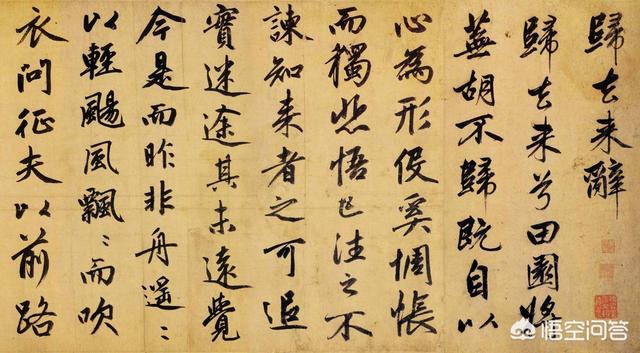 歸去来辭
歸去来兮田園將
蕪胡不歸既自以
心為形役奚惆悵
而獨悲悟已往之不
諫知来者之可追
實迷途其未遠覺
今是而昨非舟遥〻
以輕颺風飄〻而吹
衣問征夫以前路
悟空问答